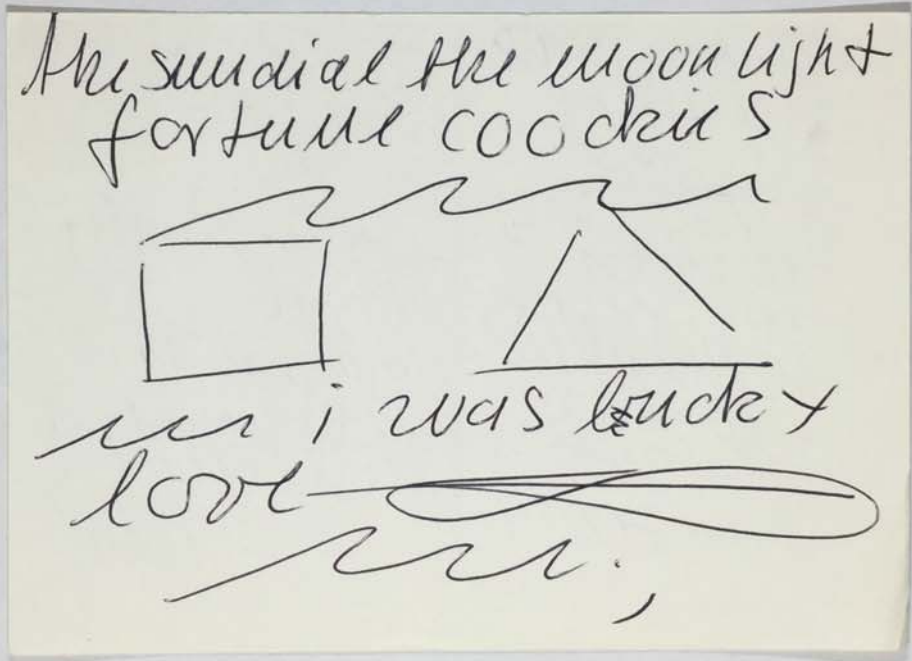 the sundial the moonlight
fortune coockies
i was lucky
love